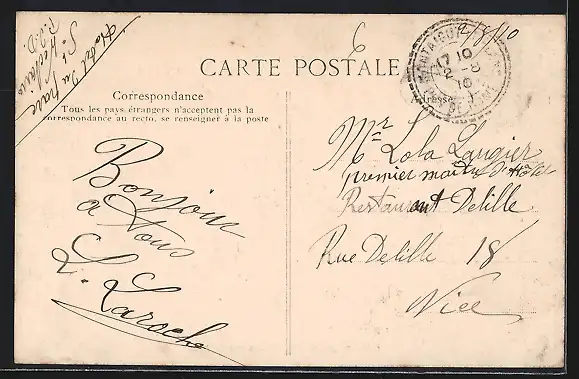 Hotel du Parc
St Hilaire
P. D. D.
2/8/10
6
CARTE POSTALE
Correspondance
Tous les pays étrangers n'acceptent pas la
correspondance au recto, se renseigner à la poste
Adresse
MONTAIGUT
17 10
2 -8
10
PUY DE DOME
Bonjour
à vous
L. Laroche
Mr Lola Laugier
premier maître d'Hôtel
Restaurant Delille
Rue Delille 18
Nice